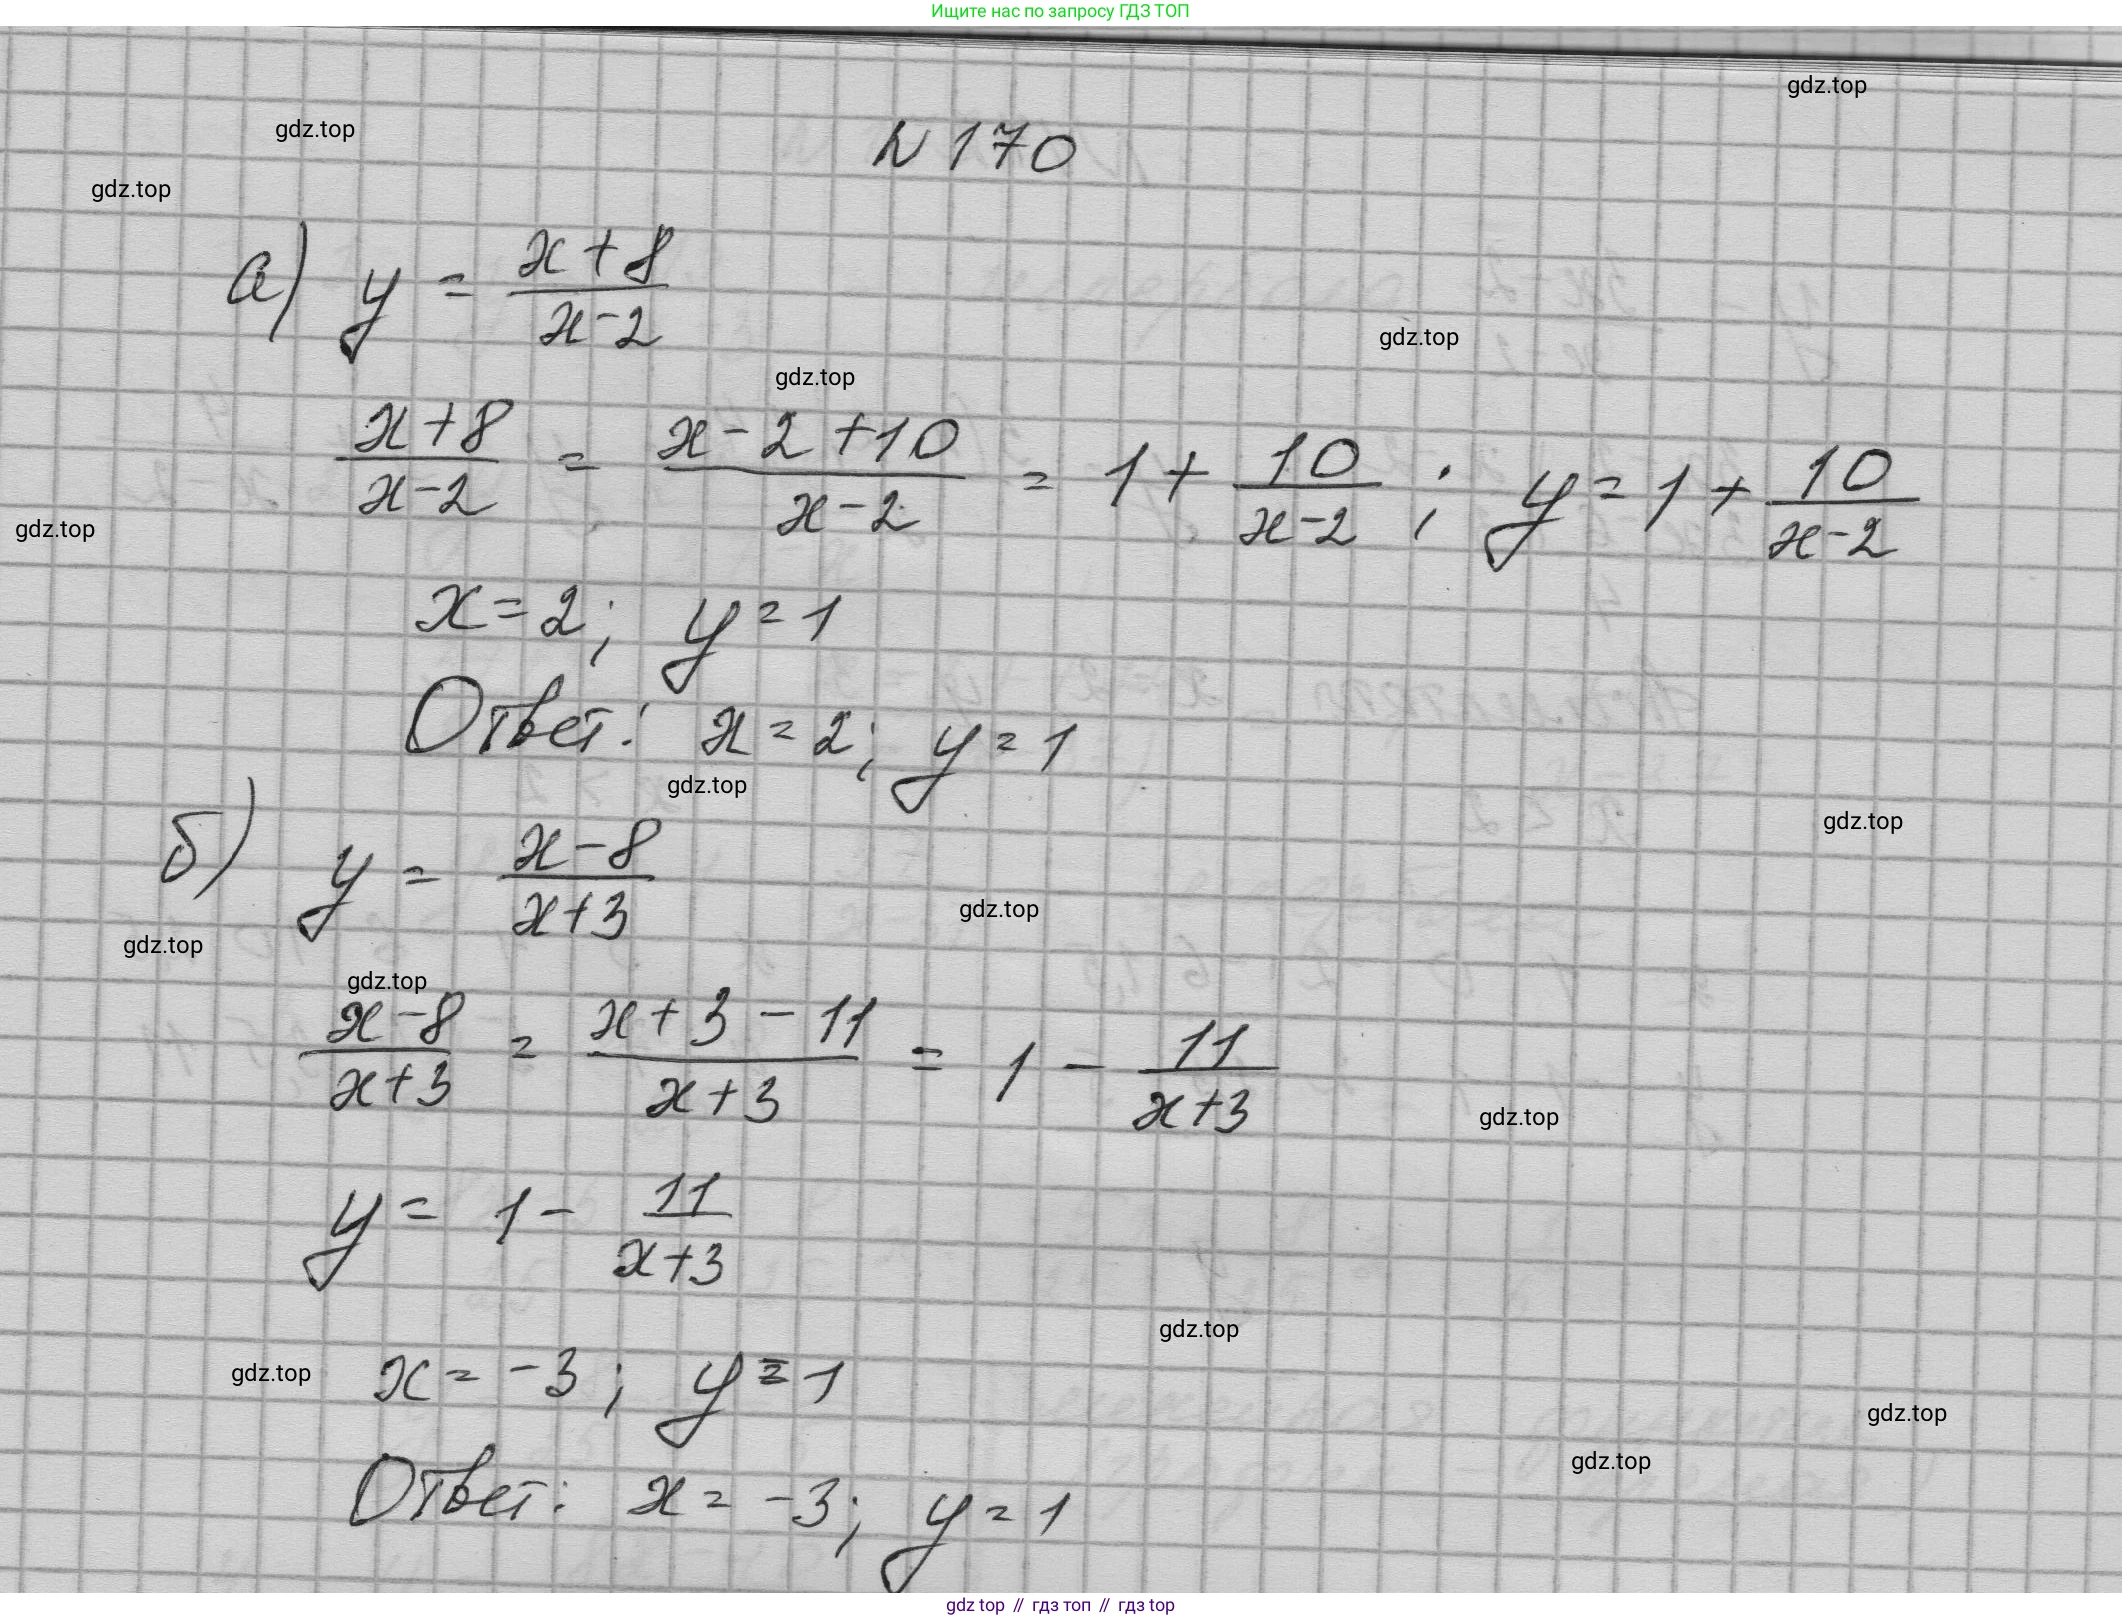 Ищите нас по запросу ГДЗ ТОП
gdz.top
gdz.top
№ 170
gdz.top
а) y = (x+8)/(x-2)
gdz.top
gdz.top
(x+8)/(x-2) = (x-2+10)/(x-2) = 1 + 10/(x-2) ; y = 1 + 10/(x-2)
gdz.top
x = 2; y = 1
Ответ: x = 2; y = 1
gdz.top
gdz.top
б) y = (x-8)/(x+3)
gdz.top
gdz.top
gdz.top
(x-8)/(x+3) = (x+3-11)/(x+3) = 1 - 11/(x+3)
gdz.top
y = 1 - 11/(x+3)
gdz.top
gdz.top
x = -3; y = 1
gdz.top
gdz.top
Ответ: x = -3; y = 1
gdz top // гдз топ // гдз top